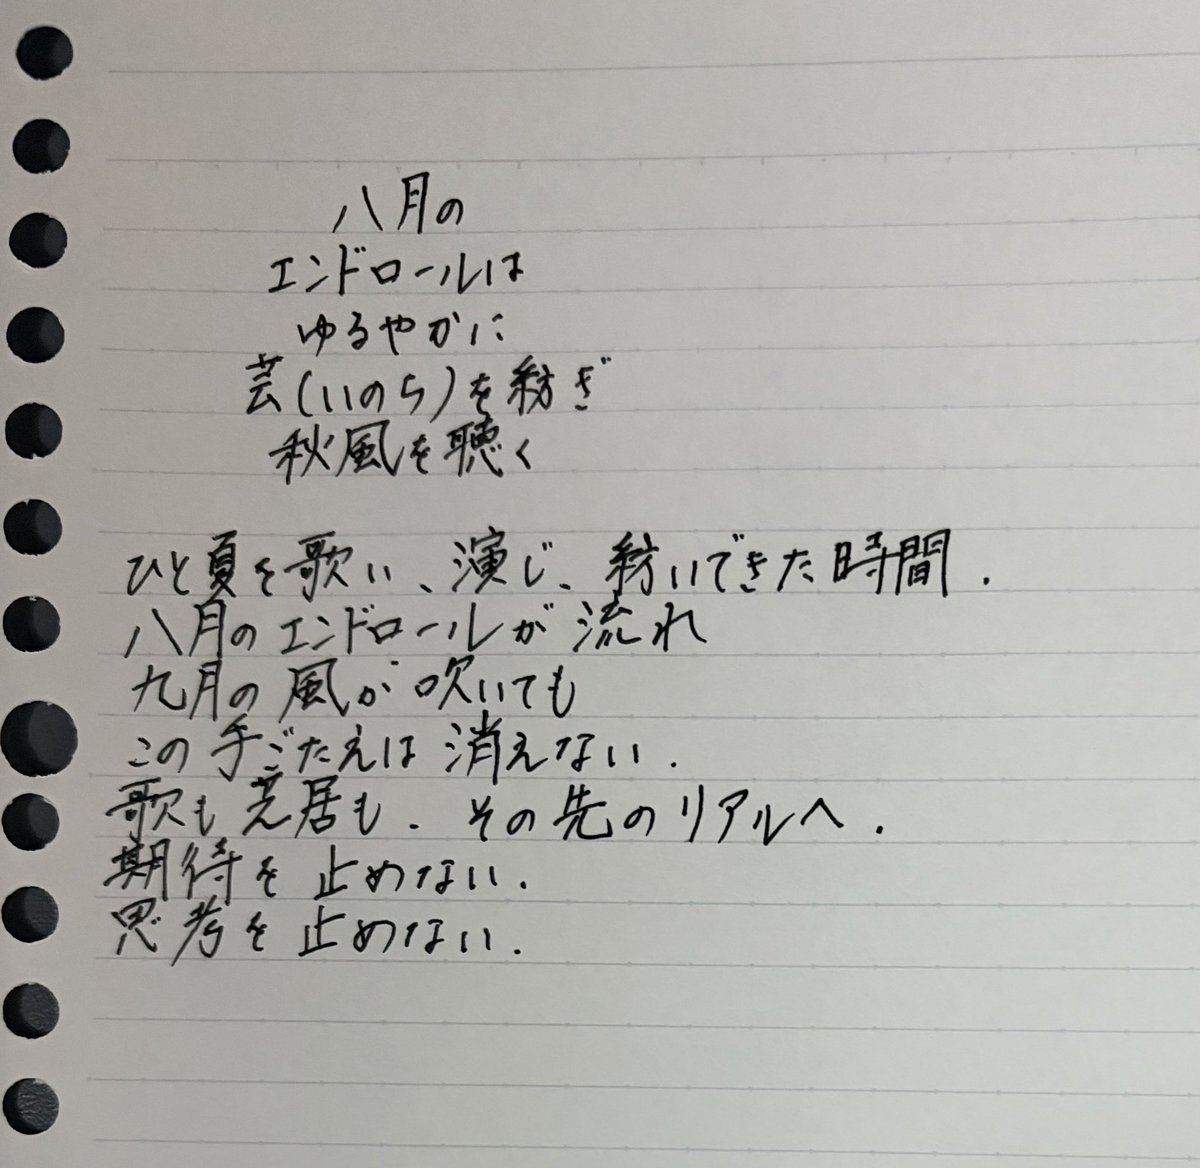 八月の
エンドロールは
ゆるやかに
芸(いのち)を紡ぎ
秋風を聴く
ひと夏を歌い、演じ、紡いできた時間.
八月のエンドロールが流れ
九月の風が吹いても
この手ごたえは消えない.
歌も芝居も.その先のリアルへ.
期待を止めない.
思考を止めない.